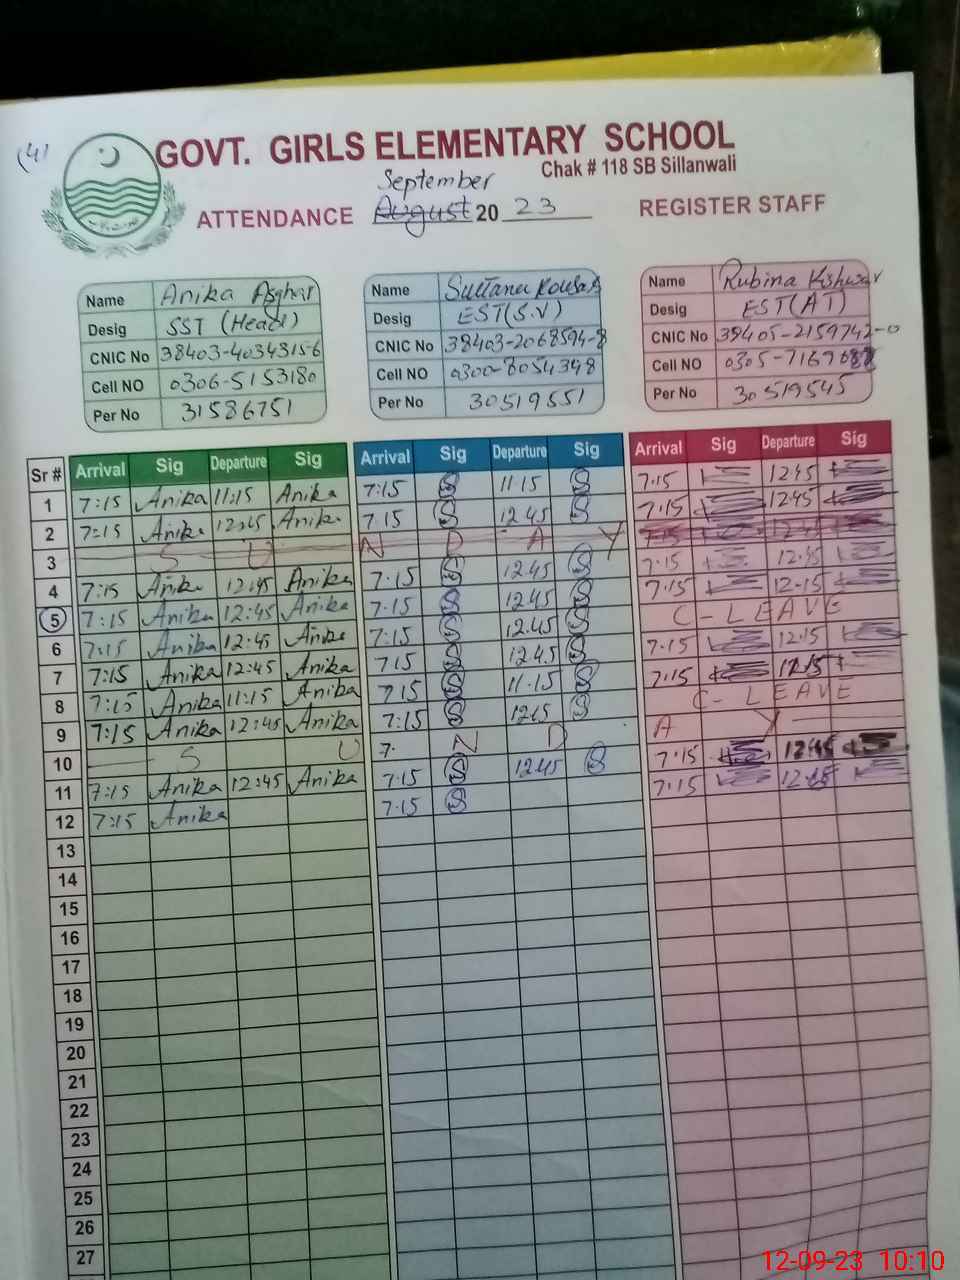 (4)
GOVT. GIRLS ELEMENTARY SCHOOL
Chak # 118 SB Sillanwali
September
ATTENDANCE August 20 23 REGISTER STAFF
Name Anika Asghar
Desig SST (Head)
CNIC No 38403-4034815-6
Cell NO 0306-5153180
Per No 31586751
Name Sultana Kousar
Desig EST(S.V)
CNIC No 38403-2068594-8
Cell NO 0300-6054398
Per No 30519551
Name Rubina Kishwar
Desig EST(AT)
CNIC No 38405-2159742-0
Cell NO 0305-7169
Per No 30519545
Sr # Arrival Sig Departure Sig Arrival Sig Departure Sig Arrival Sig Departure Sig
7:15 12:45
1 7:15 Anika 11:15 Anika 7:15 S 11.15 S 7:15 12:45
2 7:15 Anika 12:45 Anika 7.15 S 12.45 S 7:15 12:45
3 S U N D A Y 7:15 12.45
4 7:15 Anika 12:45 Anika 7.15 S 12.45 S 7:15 12.15
5 7:15 Anika 12:45 Anika 7.15 S 12.45 S C-LEAVE
6 7:15 Anika 12:45 Anika 7:15 S 12.45 S 7:15 12.15
7 7:15 Anika 12:45 Anika 7.15 S 12.45 S 7:15 12.15
8 7:15 Anika 11:15 Anika 7.15 S 11.15 S C-LEAVE
9 7:15 Anika 12:45 Anika 7:15 S 12.15 S A Y
10 S U 7. N D 7:15 12:45
11 7:15 Anika 12:45 Anika 7:15 S 12.45 S 7:15 12:45
12 7:15 Anika 7:15 S
13
14
15
16
17
18
19
20
21
22
23
24
25
26
27
12-09-23 10:10